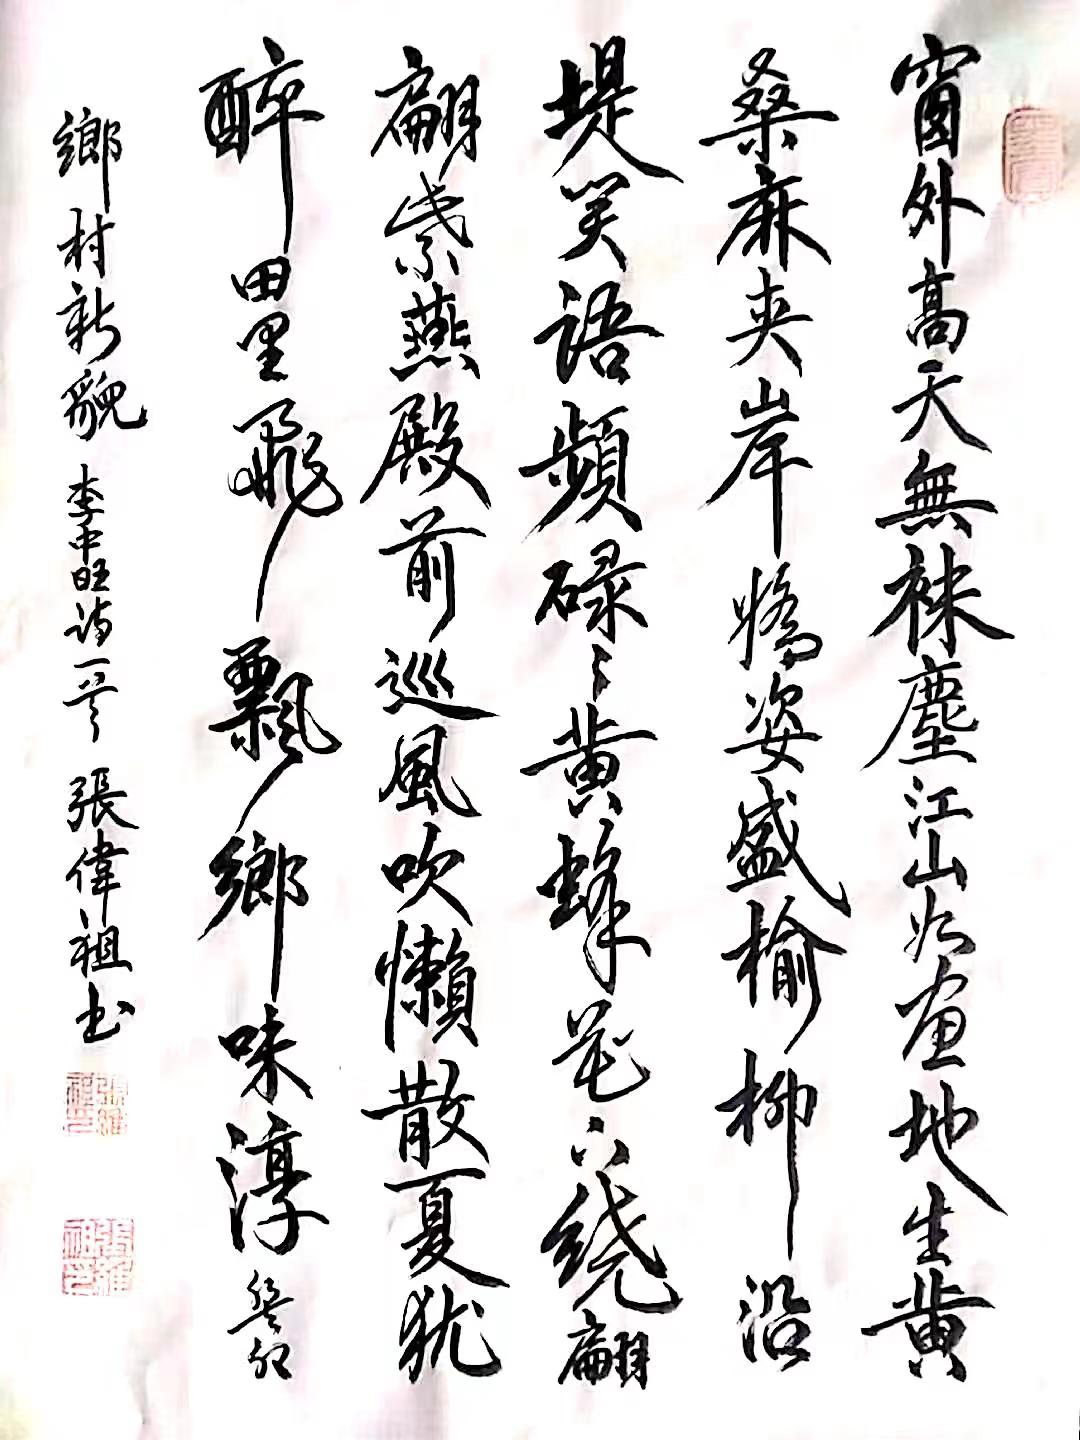 窗外高天無袜塵江山如画地生黄
桑麻夹岸嬌姿盛榆柳沿
堤笑语頻碌〻黄蜂花下绕翩
翩紫燕殿前巡風吹懒散夏犹
醉田里飛飄鄉味淳癸卯
鄉村新貌李中旺诗一首張偉祖书